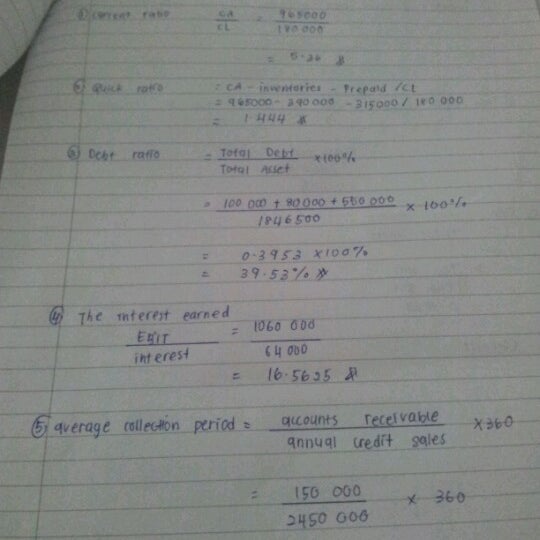 ① Current ratio CA/CL = 965000/180 000
= 5.36
② Quick ratio = CA - inventories - Prepaid / CL
= 965000 - 390 000 - 315000 / 180 000
= 1.444
③ Debt ratio = Total Debt/Total Asset × 100%
= 100 000 + 80000 + 550 000/1846500 × 100%
= 0.3953 × 100%
= 39.53%
④ The interest earned
EBIT/interest = 1060 000/64 000
= 16.5625
⑤ average collection period = accounts receivable/annual credit sales × 360
= 150 000/2450 000 × 360